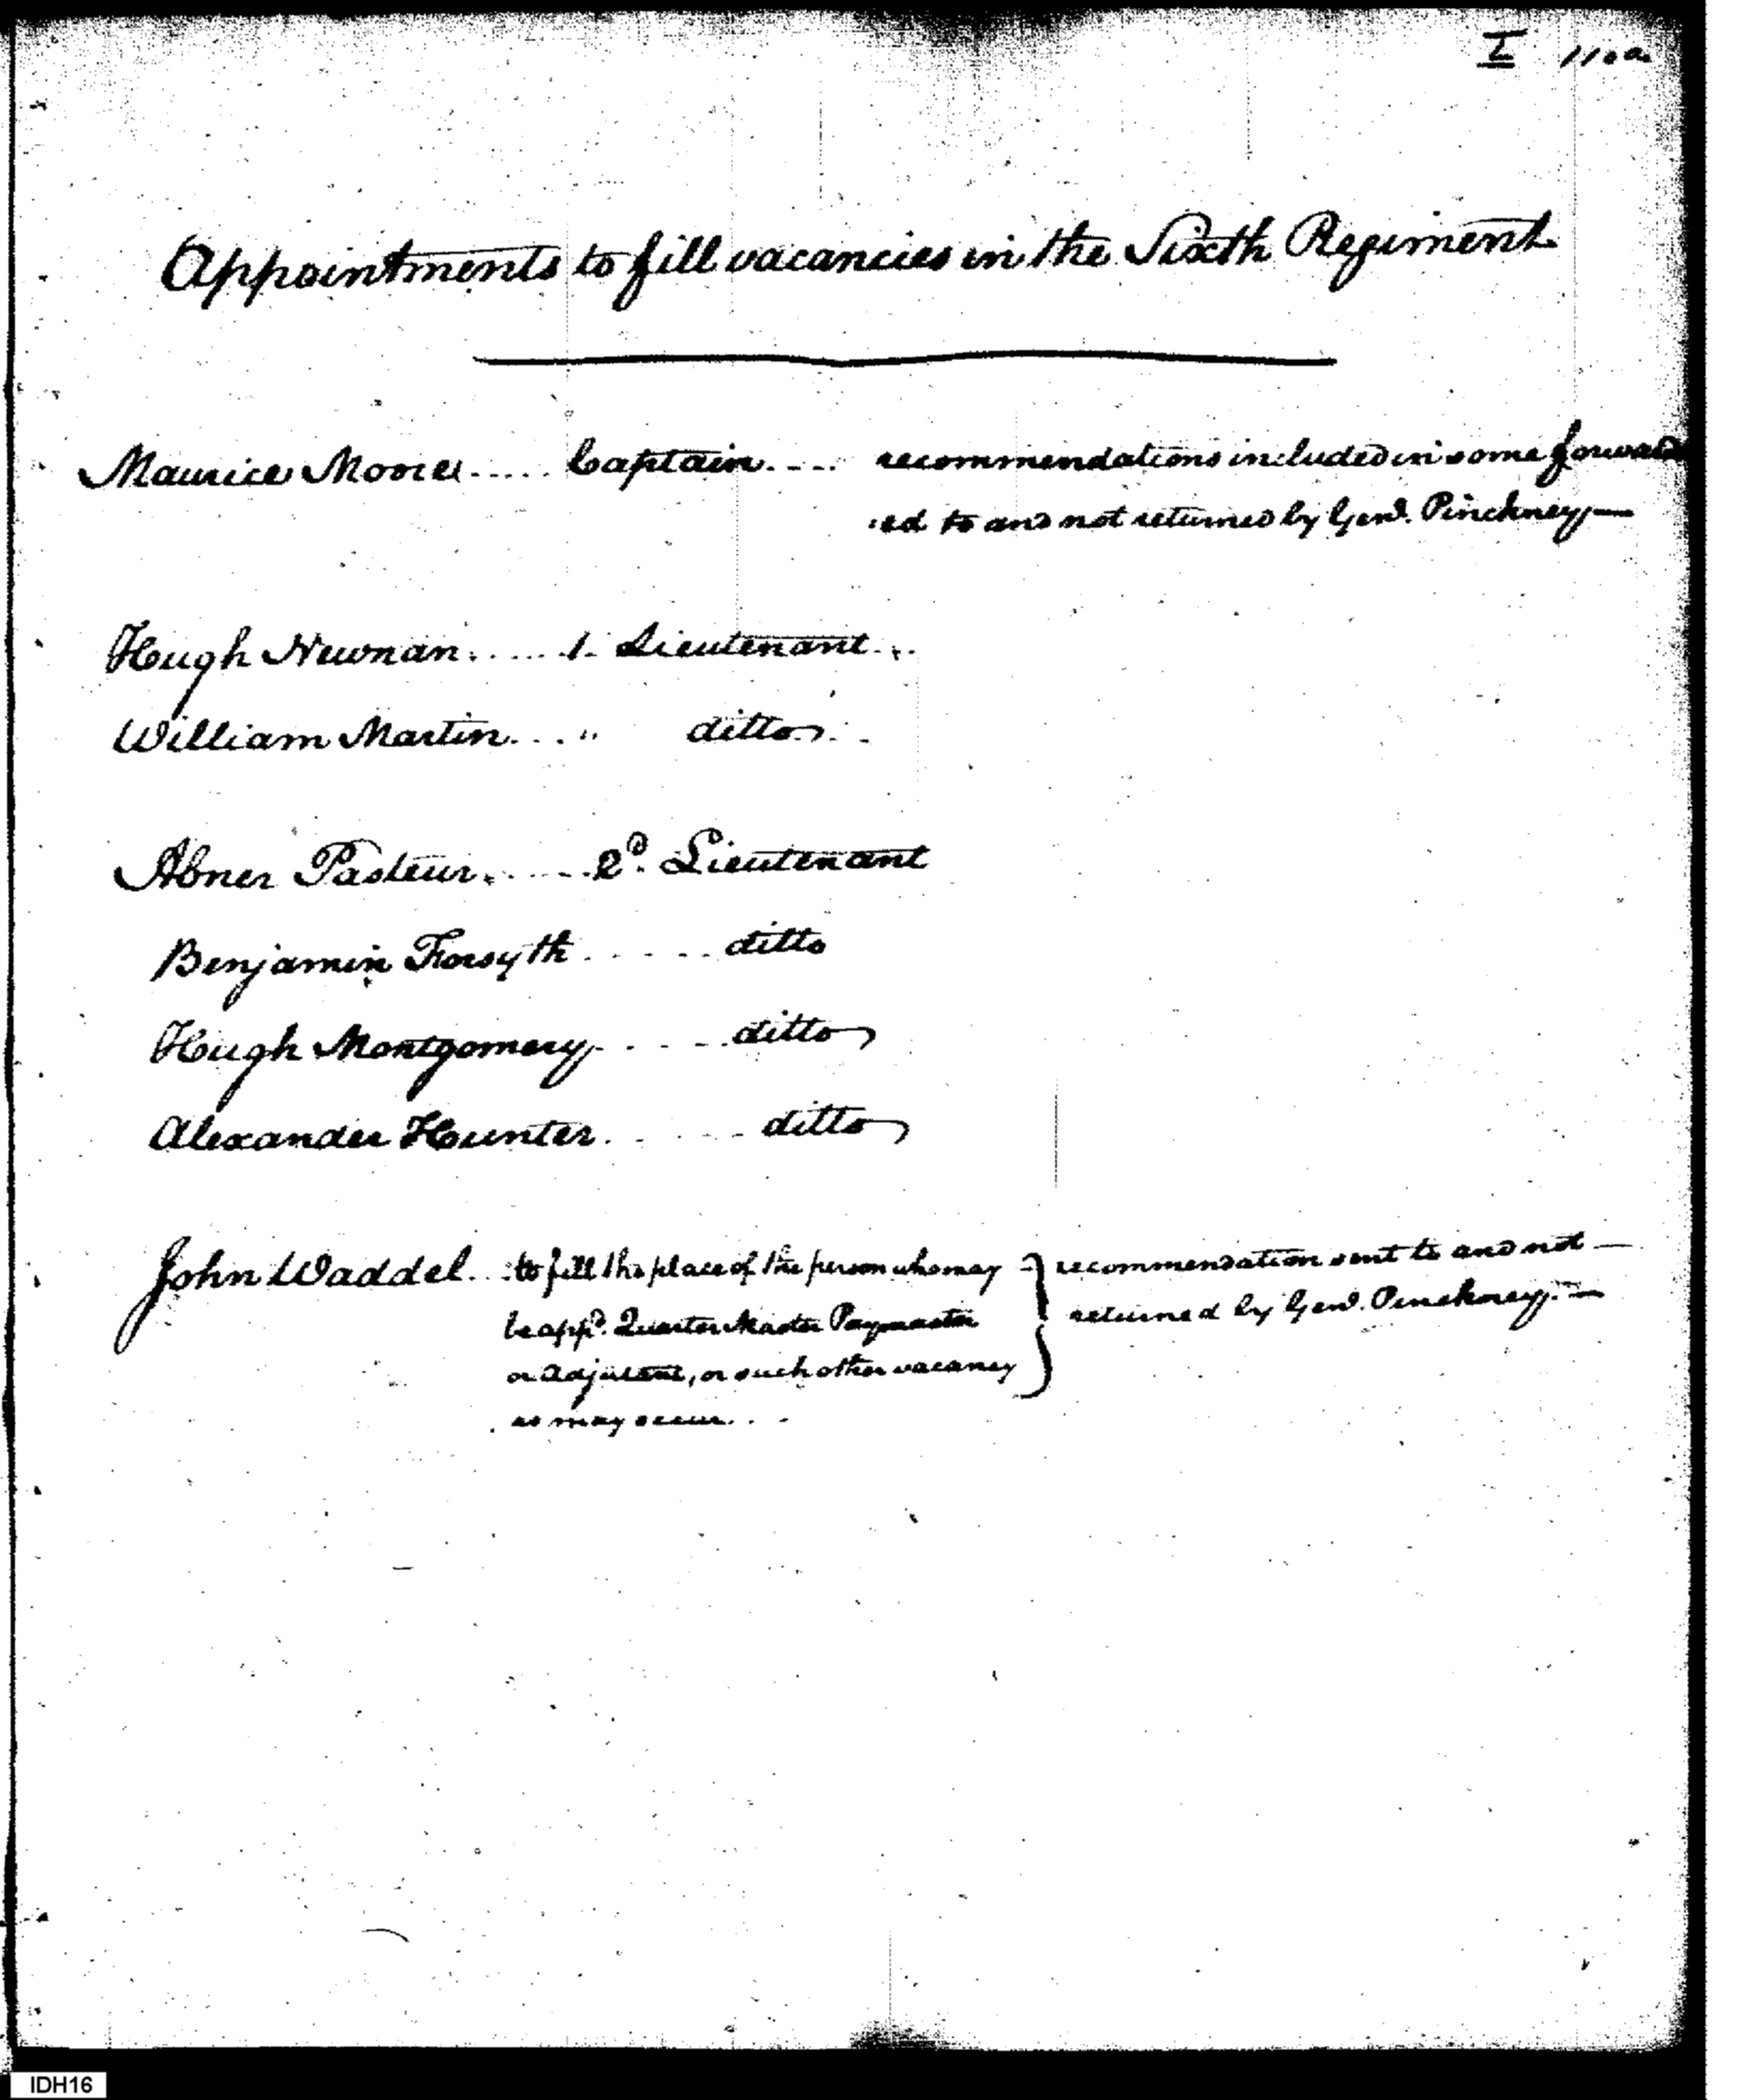 I 110a
Appointments to fill vacancies in the Sixth Regiment
Maurice Moore ..... Captain .... recommendations included in some forward
ed to and not returned by Genl. Pinckney —
Hugh Newnan ..... 1. Lieutenant ..
William Martin ... " ditto . .
Abner Pasteur ..... 2d. Lieutenant
Benjamin Forsyth ..... ditto
Hugh Montgomery ..... ditto
Alexander Hunter ..... ditto
John Waddel .. to fill the place of the person who may } recommendation sent to and not —
be appd. Quarter Master Paymaster returned by Genl. Pinckney. —
or Adjutant, or such other vacancy
as may occur . . -
IDH16